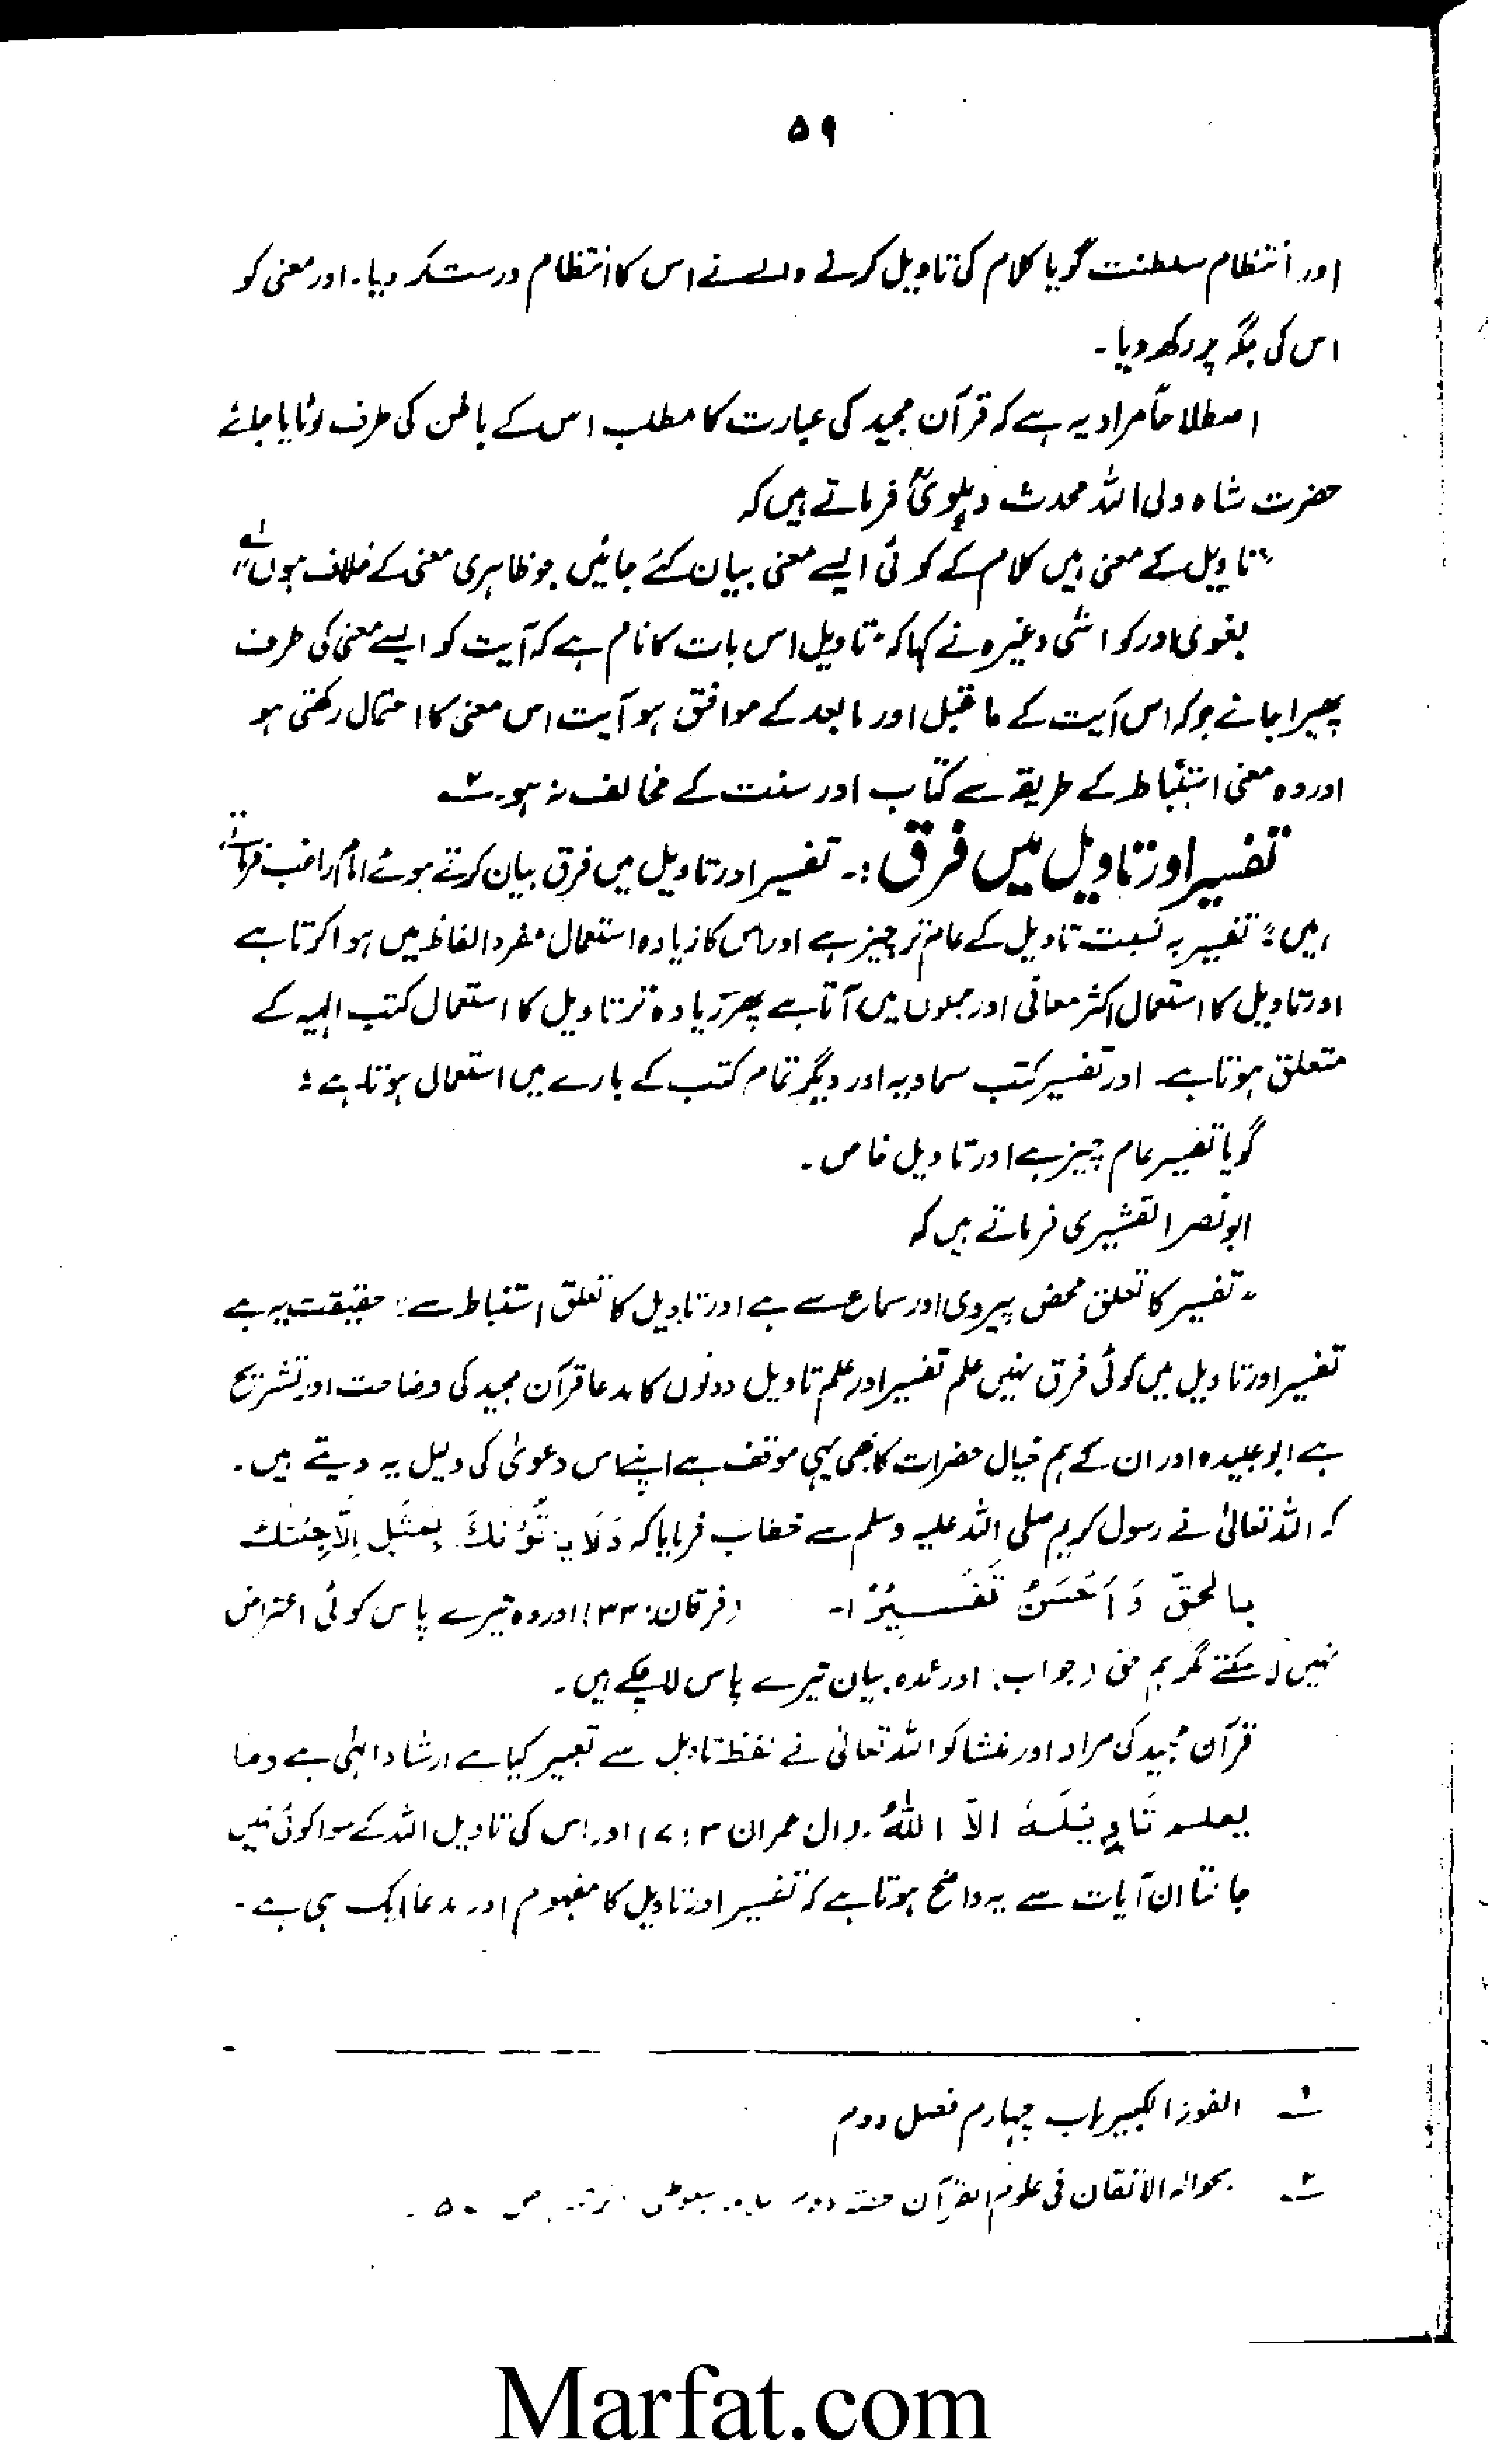 ۵۹
اور انتظام سلطنت گویا کلام کی تاویل کرنے والے نے اس کا انتظام درست کر دیا۔ اور معنی کو
اس کی جگہ پر رکھ دیا۔
اصطلاحاً مراد یہ ہے کہ قرآن مجید کی عبارت کا مطلب اس کے باطن کی طرف لوٹایا جائے
حضرت شاہ ولی اللہ محدث دہلویؒ فرماتے ہیں کہ
"تاویل کے معنی ہیں کلام کے کوئی ایسے معنی بیان کئے جائیں جو ظاہری معنی کے خلاف ہوں" ۱ے
بغوی اور کواشی وغیرہ نے کہا کہ "تاویل اس بات کا نام ہے کہ آیت کو ایسے معنی کی طرف
پھیرا جائے جو کہ اس آیت کے ماقبل اور مابعد کے موافق ہو آیت اس معنی کا احتمال رکھتی ہو
اور وہ معنی استنباط کے طریقے سے کتاب اور سنت کے مخالف نہ ہو۔ ۲
تفسیر اور تاویل میں فرق :۔ تفسیر اور تاویل میں فرق بیان کرتے ہوئے امام راغب فرماتے
ہیں: "تفسیر بہ نسبت تاویل کے عام تر چیز ہے اور اس کا زیادہ استعمال مفرد الفاظ میں ہوا کرتا ہے
اور تاویل کا استعمال اکثر معانی اور جملوں میں آتا ہے پھر زیادہ تر تاویل کا استعمال کتب الہیہ کے
متعلق ہوتا ہے۔ اور تفسیر کتب سماویہ اور دیگر تمام کتب کے بارے میں استعمال ہوتا ہے"
گویا تفسیر عام چیز ہے اور تاویل خاص۔
ابو نصر القشیری فرماتے ہیں کہ
"تفسیر کا تعلق محض پیروی اور سماع سے ہے اور تاویل کا تعلق استنباط سے" حقیقت یہ ہے
تفسیر اور تاویل میں کوئی فرق نہیں علم تفسیر اور علم تاویل دونوں کا مدعا قرآن مجید کی وضاحت اور تشریح
ہے ابو عبیدہ اور ان کے ہم خیال حضرات کا بھی یہی موقف ہے اپنے اس دعویٰ کی دلیل یہ دیتے ہیں۔
کہ اللہ تعالیٰ نے رسول کریم صلی اللہ علیہ وسلم سے خطاب فرمایا کہ وَلَا یَأْتُوْنَكَ بِمَثَلٍ اِلَّا جِئْنٰكَ
بِالْحَقِّ وَاَحْسَنَ تَفْسِيْرًا۔ (فرقان: ۳۳) اور وہ تیرے پاس کوئی اعتراض
نہیں لا سکتے مگر ہم حق (جواب) اور عمدہ بیان تیرے پاس لا چکے ہیں۔
قرآن مجید کی مراد اور منشا کو اللہ تعالیٰ نے لفظ تاویل سے تعبیر کیا ہے ارشاد الہٰی ہے وما
یعلم تَاْوِيْلَهٗ الاّ اللّٰهُ۔ (ال عمران ۳:۷) اور اس کی تاویل اللہ کے سوا کوئی نہیں
جانتا ان آیات سے یہ واضح ہوتا ہے کہ تفسیر اور تاویل کا مفہوم اور مدعا ایک ہی ہے۔
۱ الفوز الکبیر باب چہارم فصل دوم
۲ بحوالہ الاتقان فی علوم القرآن حصہ دوم سیوطی ص
Marfat.com